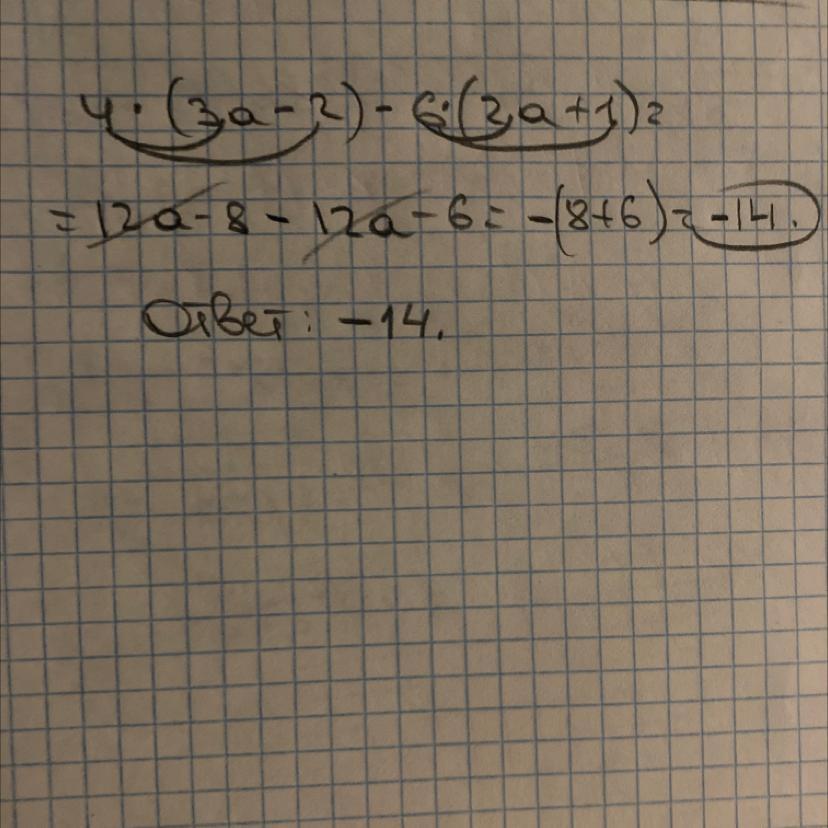 4 · (3a - 2) - 6·(2a + 1) =
= 12a - 8 - 12a - 6 = -(8+6) = -14.
Ответ: -14.